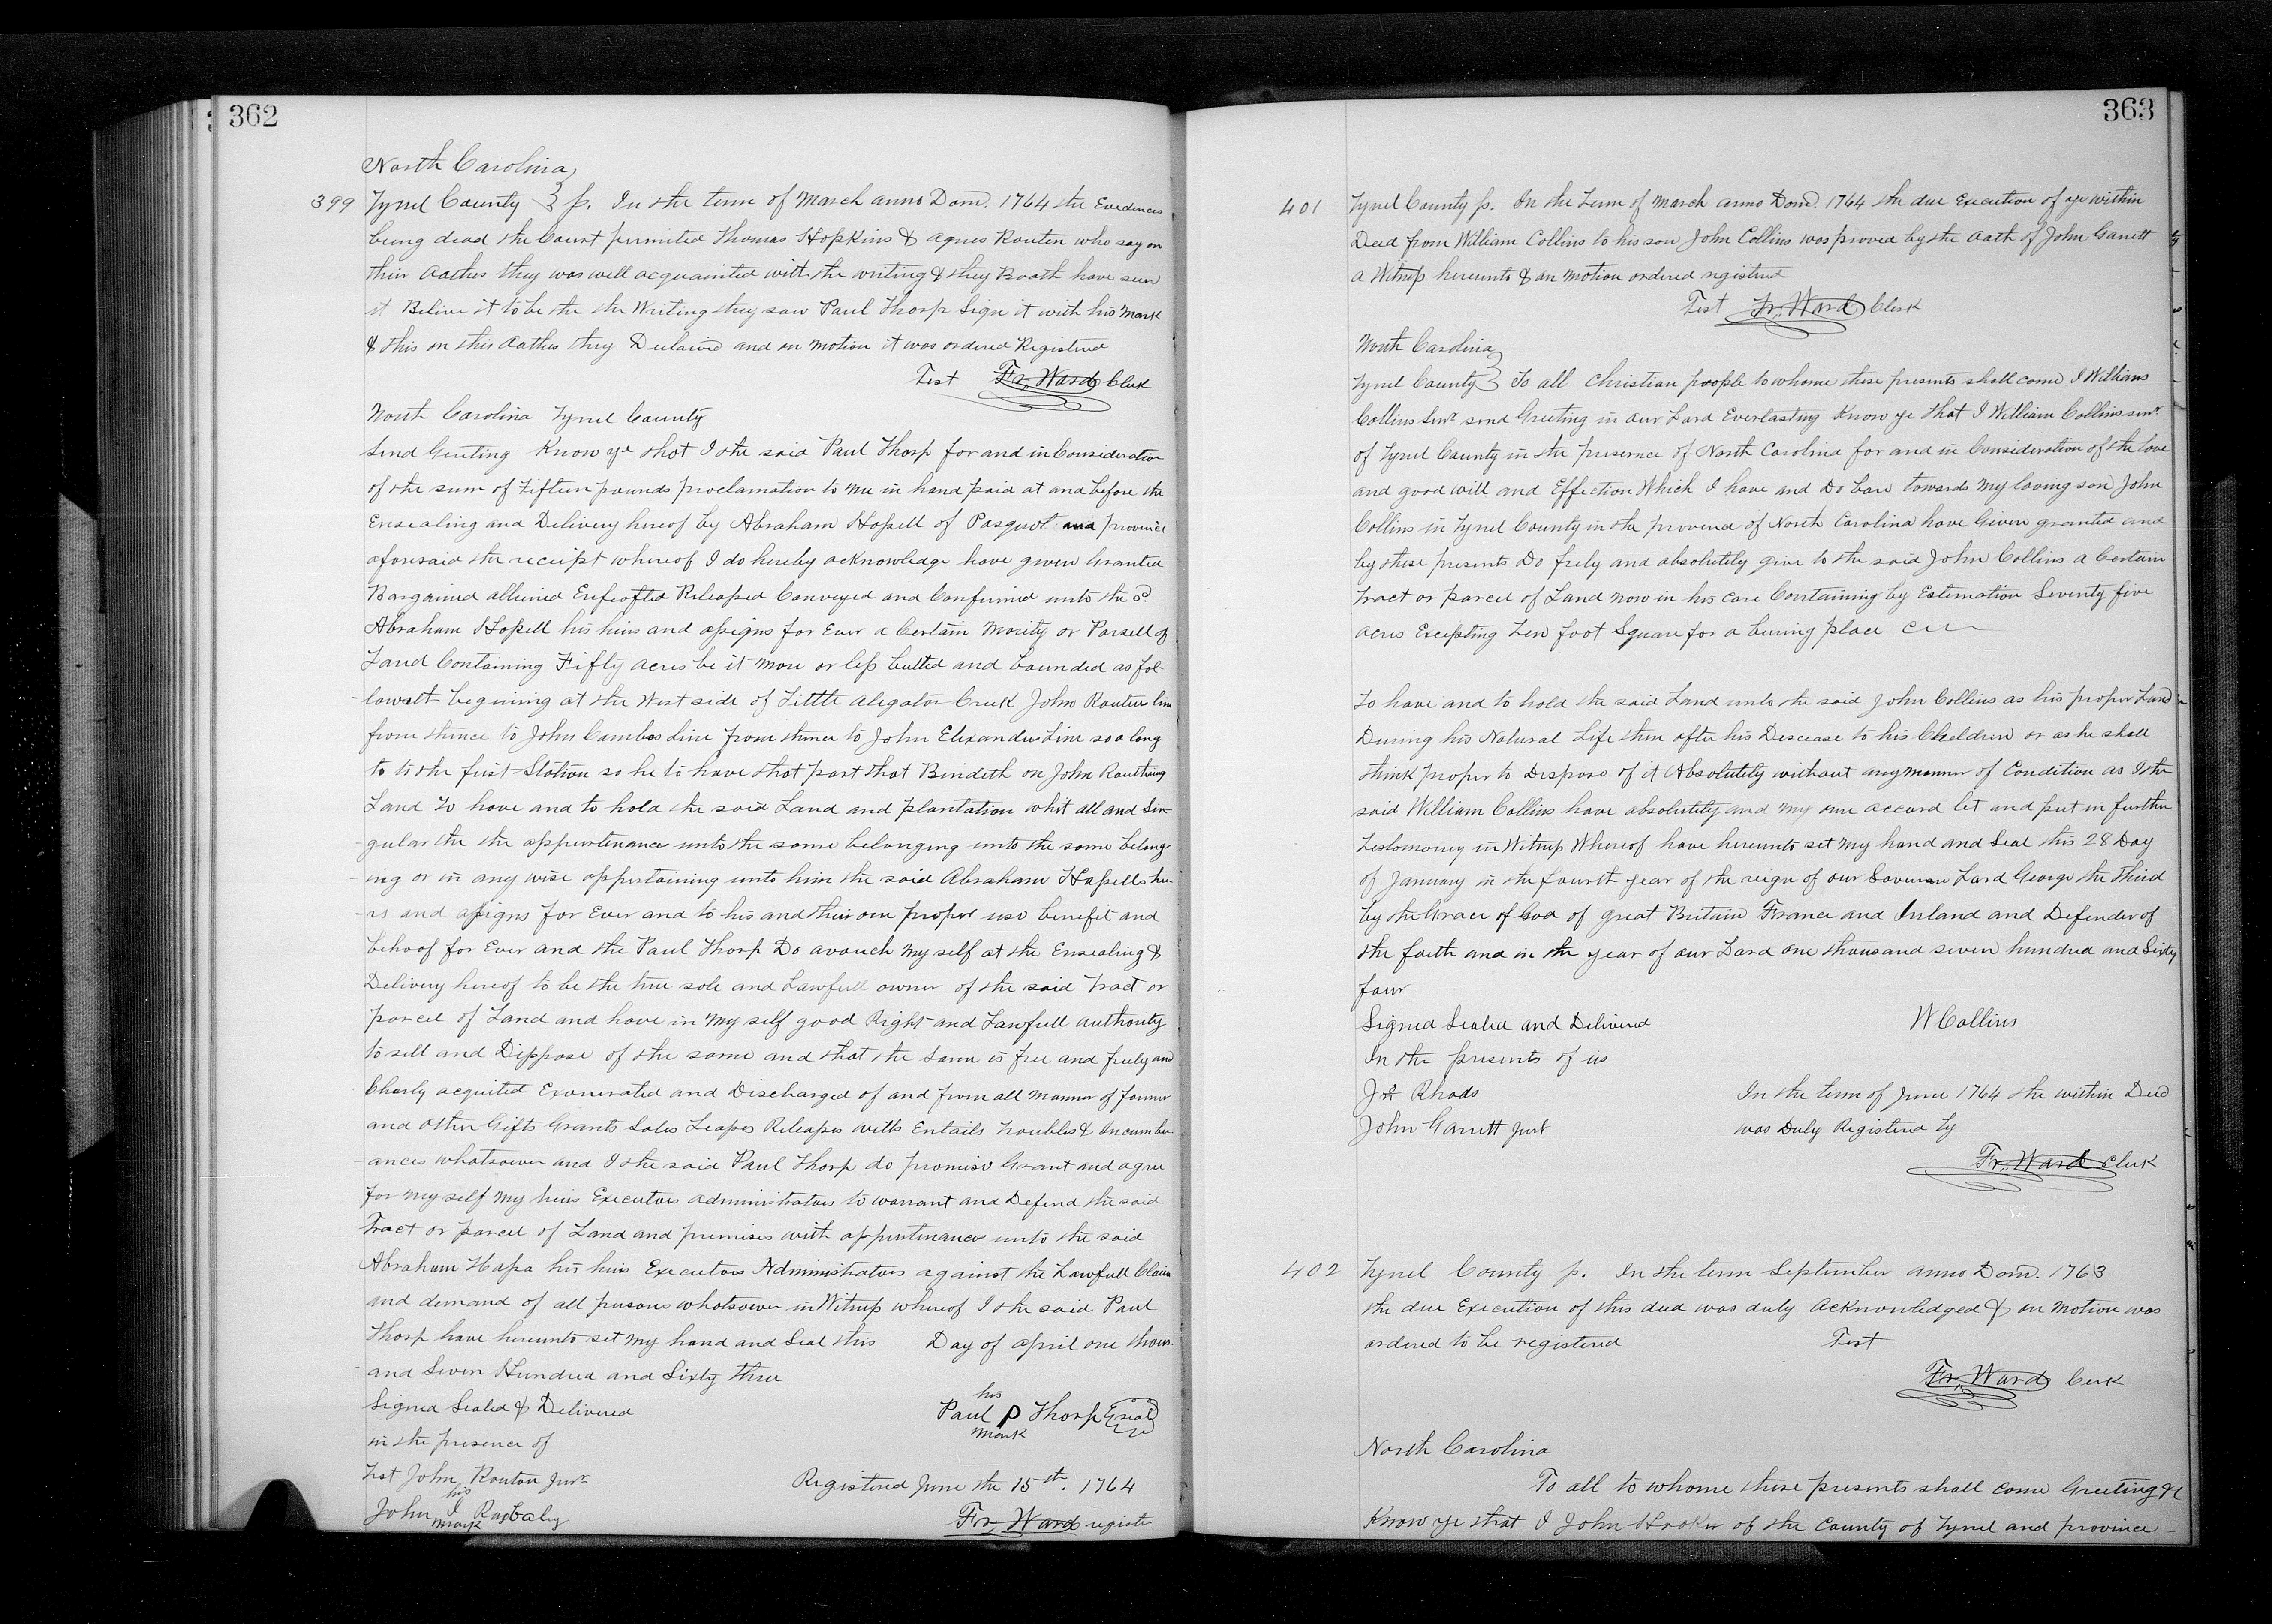 362
North Carolina
399 Tyrrel County } ss. In the term of March anno Dom. 1764 the Evedences
being dead the Court permited Thomas Hopkins & Agnes Routen who say on
their Aathes they was well acquainted with the writing & they Booth have seen
it Belive it to be the the Writing they saw Paul Thorp Sign it with his mark
& this on this Aathes they Declared and on motion it was ordered Registered
Test Fr. Ward Clerk
North Carolina Tyrrel County
Send Greeting Know ye that I the said Paul Thorp for and in Consideration
of the sum of Fifteen pounds proclamation to me in hand paid at and before the
Ensealing and Delivery hereof by Abraham Hopell of Pasquot and province
aforesaid the receipt whereof I do hereby acknowledge have given Granted
Bargained alliened Enfeofted Released Conveyed and Confirmed unto the sd
Abraham Hopell his heirs and assigns for Ever a Certain Mority or Parsell of
Land Containing Fifty acres be it more or less butted and bounded as fol-
lowett begining at the West side of Little Alegator Creek John Routen line
from thence to John Cambos Line from thence to John Elexandes Line so a long
to to the first Station so he to have that part that Bindeth on John Roustwing
Land To have and to hold the said Land and plantation whit all and Sin-
gular the the appurtenance unto the same belonging unto the same belong-
ing or in any wise appertaining unto him the said Abraham Hapells hei-
rs and assigns for Ever and to his and their one proper use benefit and
behoof for Ever and the Paul Thorp Do avouch my self at the Ensealing &
Delivery hereof to be the true sole and Lawfull owner of the said Tract or
parcel of Land and have in my self good Right and Lawfull authority
to sell and Dispose of the same and that the same is free and freely and
Clearly acquited Exonerated and Discharged of and from all manner of former
and other Gifts Grants Sales Leases Releases wills Entails Troubles & Incumber-
ances whatsoever and I the said Paul Thorp do promise Grant and agree
for my self my heirs Executors administrators to warrant and Defend the said
Tract or parcel of Land and premises with appurtenances unto the said
Abraham Hapa his heirs Executors Administrators against the Lawfull Claim
and demand of all persons whatsoever in Witness whereof I the said Paul
Thorp have hereunto set my hand and Seal this Day of april one thous-
and Seven Hundred and Sixty three
Signed Sealed & Delivered
in the presence of
his
Paul P Thorp Seal
mark
Test John Routon Junr
his
John I Rasbaley
mark
Registered June the 15th. 1764
Fr. Ward registr
363
401 Tyrrel County ss. In the Term of March anno Dom. 1764 the due Execution of ye within
Deed from William Collins to his son John Collins was proved by the Oath of John Garrett
a Witness hereunto & on motion ordered registered
Test Fr. Ward Clerk
North Carolina
Tyrrel County } To all Christian people to whome these presents shall come I William
Collins Senr. send Greeting in our Lord Everlasting Know ye that I William Collins senr.
of Tyrrel County in the presernce of North Carolina for and in Consideration of the love
and good will and Effection Which I have and Do bare towards my loving son John
Collins in Tyrrel County in the provence of North Carolina have Given granted and
by these presents Do frely and absolutely give to the said John Collins a Certain
Tract or parcel of Land now in his care Containing by Estimation Seventy five
acres Excepting Ten foot Square for a buring place
To have and to hold the said Land unto the said John Collins as his proper Land
During his Natural Life then after his Descease to his Cheeldren or as he shall
think proper to Dispose of it Absolutely without any manner of Condition as I the
said William Collins have absolutely and my one accord let and put in further
Testomoney in Witness Whereof have hereunto set my hand and Seal this 28 Day
of January in the fourth year of the reign of our Soveran Lord George the Third
by the Grace of God of great Britain France and Ireland and Defender of
the faith and in the year of our Lord one thousand seven hundred and Sixty
four
Signed Sealed and Delivered W Collins
In the presents of us
Jn Rhods
John Garrett Junr
In the term of June 1764 the within Deed
was Duly Registered by
Fr. Ward Clerk
402 Tyrrel County ss. In the term September anno Dom. 1763
the due Execution of this deed was duly Acknowledged & on motion was
ordered to be registered Test
Fr. Ward Clerk
North Carolina
To all to whome these presents shall come Greeting &c
Know ye that I John Hooker of the County of Tyrrel and province